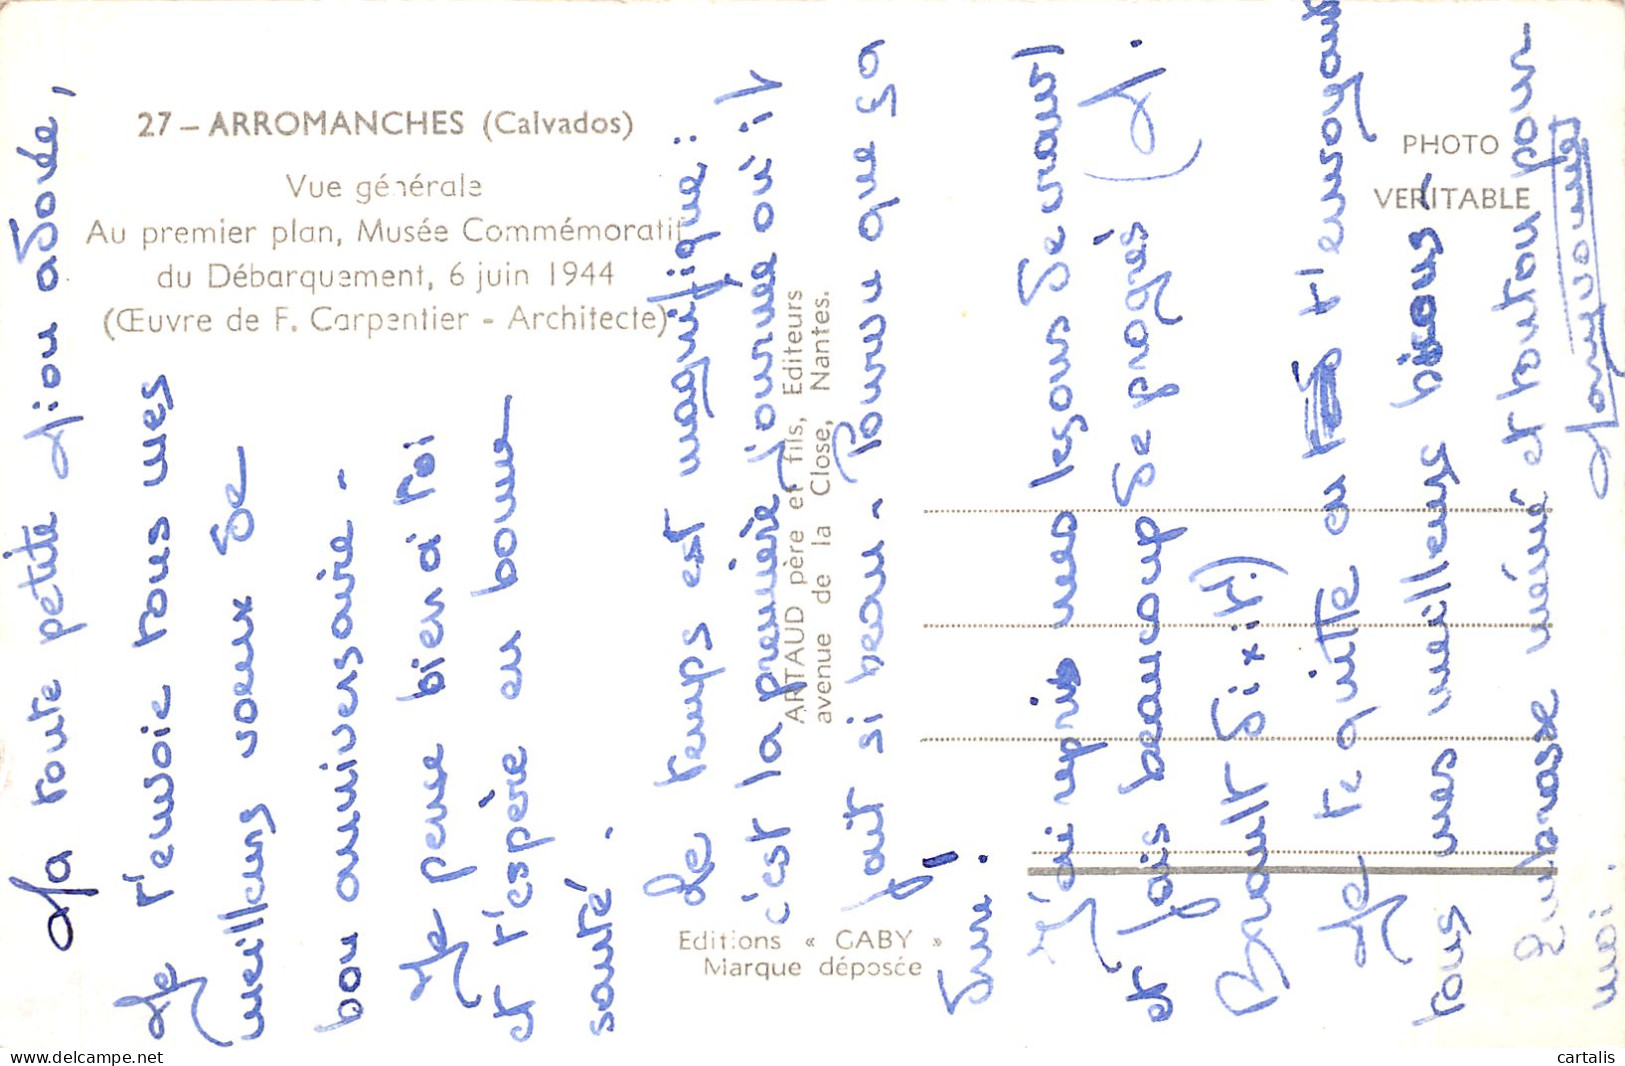 27 – ARROMANCHES (Calvados)
Vue générale
Au premier plan, Musée Commémoratif
du Débarquement, 6 juin 1944
(Œuvre de F. Carpentier - Architecte)
PHOTO
VERITABLE
ARTAUD père et fils, Editeurs
avenue de la Close, Nantes.
Editions « GABY »
Marque déposée
Ma toute petite adorée,
Je t'envoie tous mes
meilleurs voeux de
bon anniversaire -
Je pense bien à toi
et t'espère en bonne
santé.
Le temps est magnifique :
c'est la première journée où il
fait si beau. Pourvu que ça
dure.
J'ai repris mes leçons devant
et fais beaucoup de progrès (M.
Brault dixit!)
Je te quitte en t'envoyant
tous mes meilleurs bisous -
Embrasse mémé et tonton pour
moi.
delcampe.net
cartalis